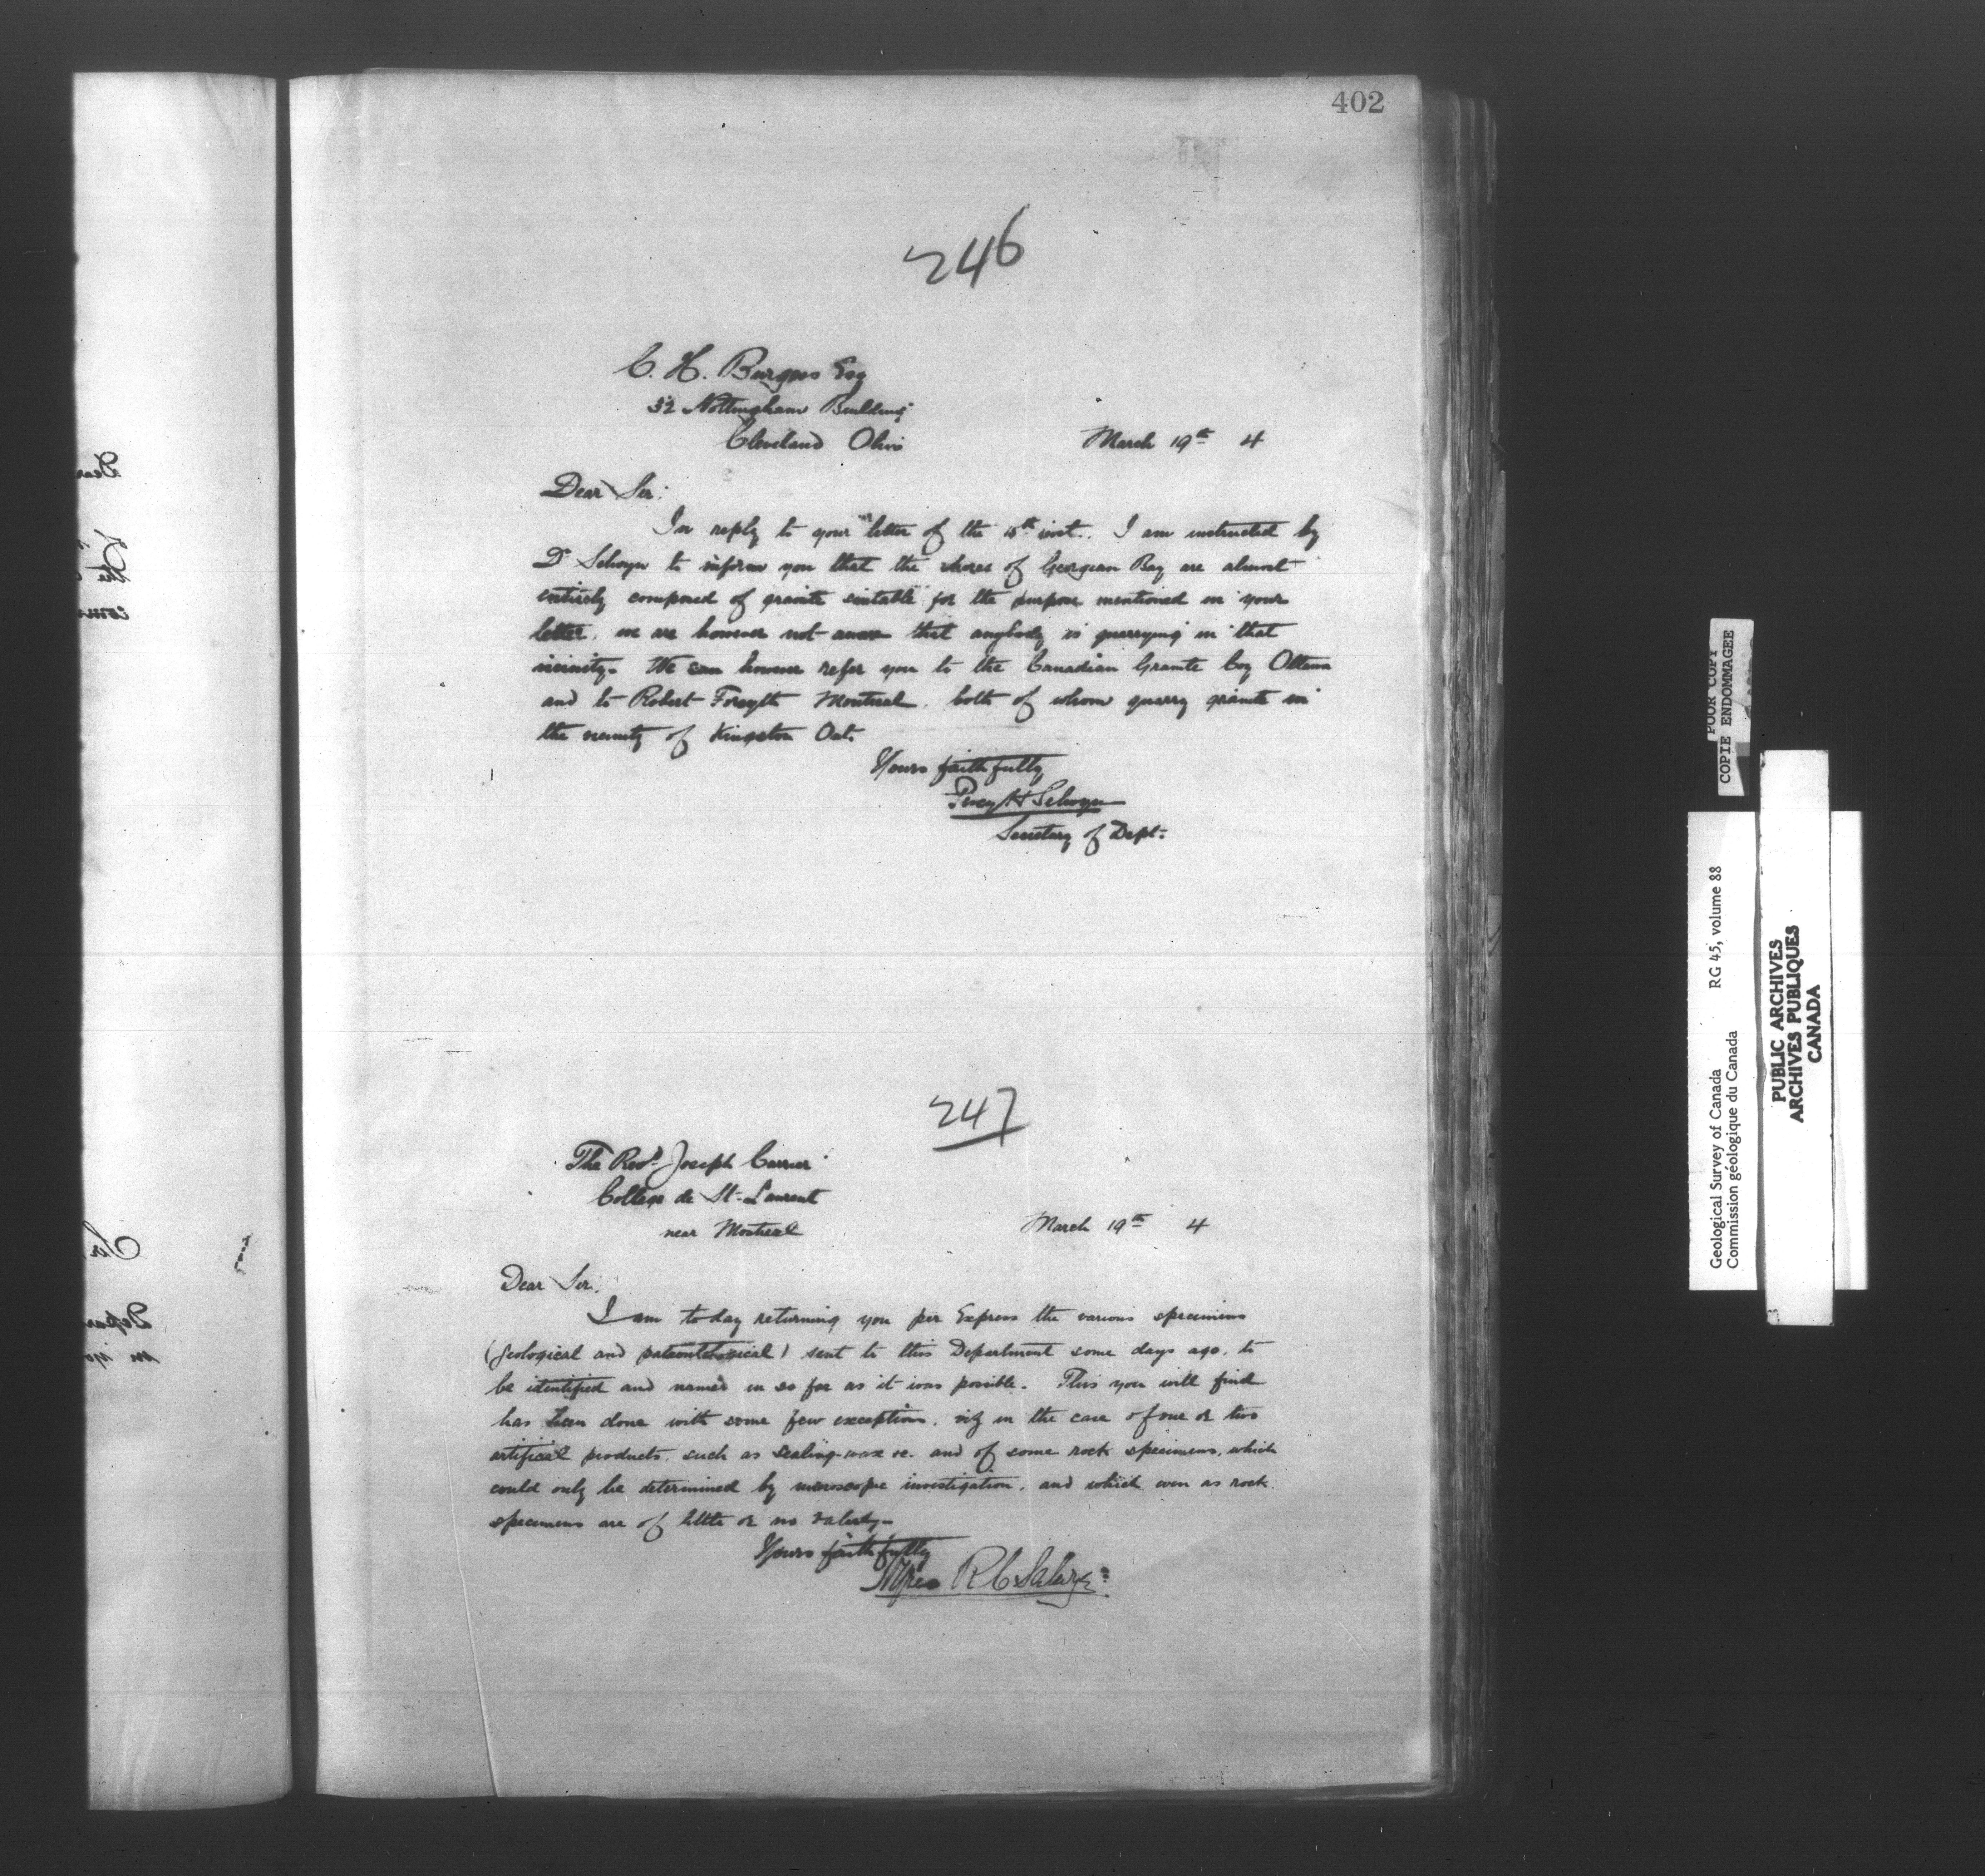 402
246
C. H. Burgess Esq
32 Nottingham Building
Cleveland Ohio
March 19th 4
Dear Sir:
In reply to your letter of the inst. I am instructed by
Dr Selwyn to inform you that the shores of Georgian Bay are almost
entirely composed of granite suitable for the purpose mentioned in your
letter, we are however not aware that anybody is quarrying in that
vicinity. We can however refer you to the Canadian Granite Coy Ottawa
and to Robert Forsyth Montreal, both of whom quarry granite in
the vicinity of Kingston Ont.
Yours faithfully
Percy H Selwyn
Secretary of Dept.
247
The Revd. Joseph Carrier
College de St-Laurent
near Montreal
March 19th 4
Dear Sir,
I am to day returning you per Express the various specimens
(geological and paleontological) sent to this Department some days ago, to
be identified and named in so far as it was possible. This you will find
has been done with some few exceptions, viz in the case of one or two
artificial products, such as sealing-wax &c. and of some rock specimens, which
could only be determined by microscopic investigation, and which even as rock
specimens are of little or no
Yours faithfully
Alfred R C Selwyn
POOR COPY
COPIE ENDOMMAGEE
Geological Survey of Canada RG 45, volume 88
Commission géologique du Canada
PUBLIC ARCHIVES
ARCHIVES PUBLIQUES
CANADA